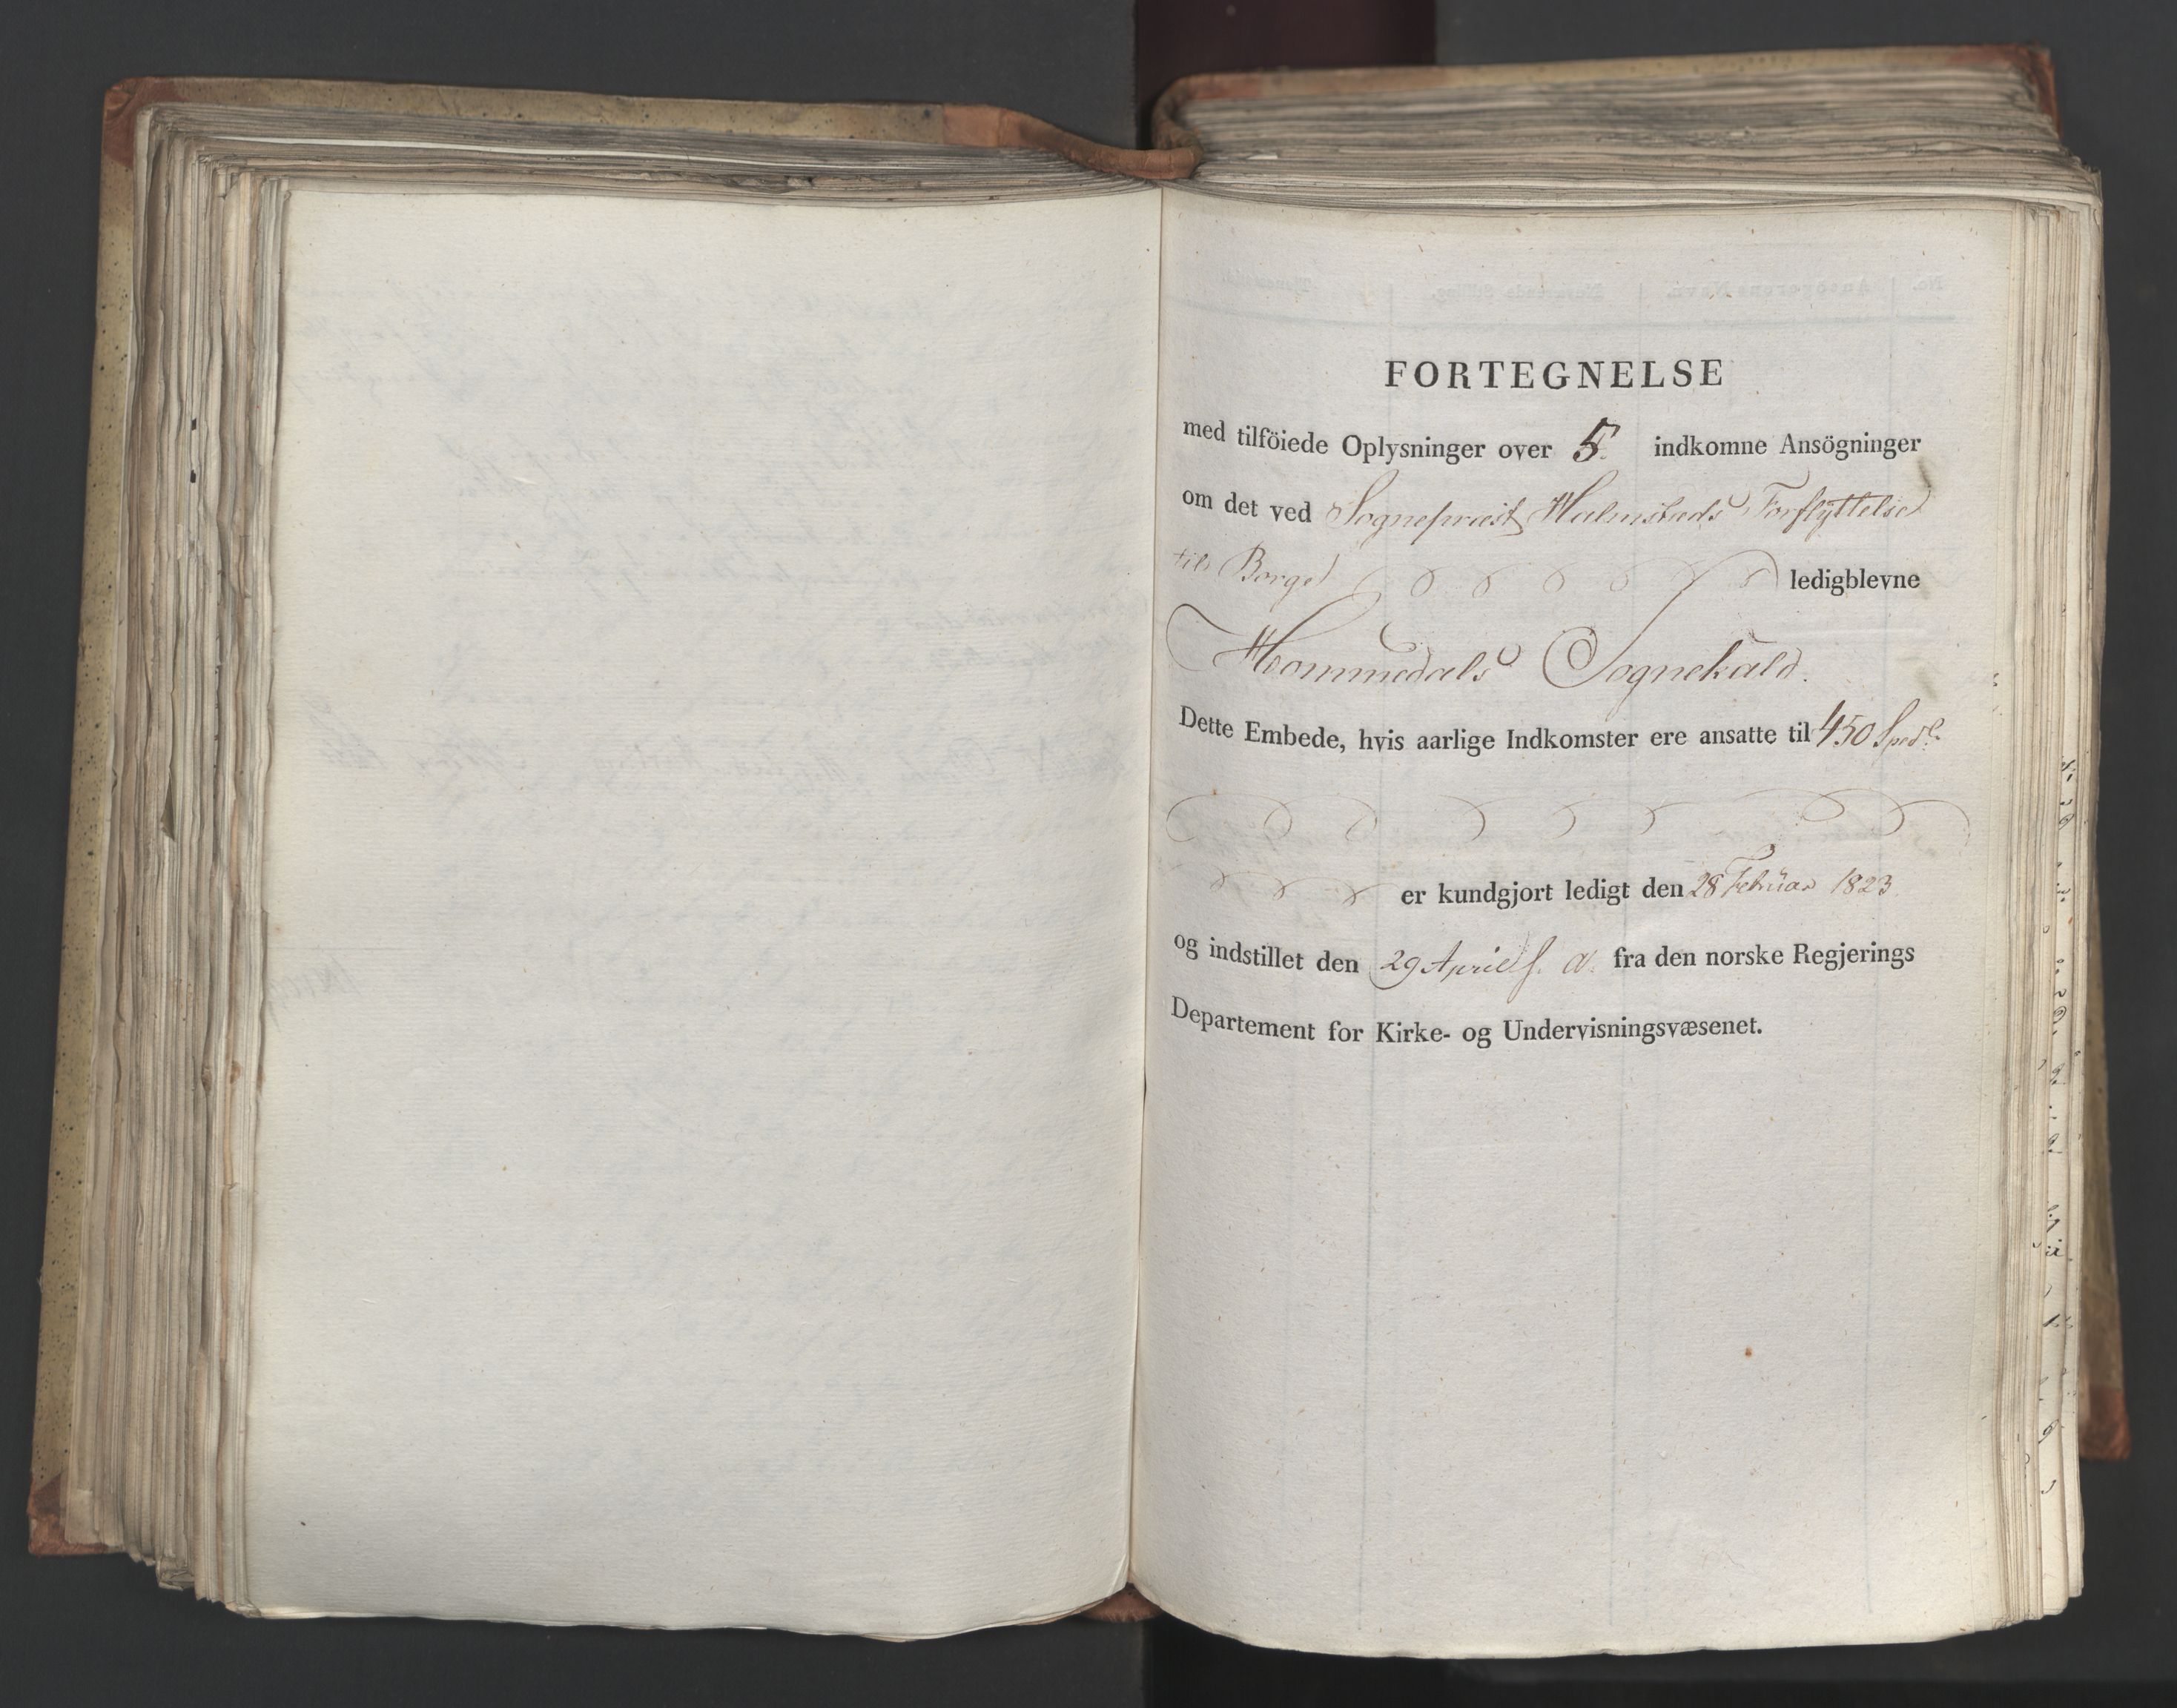 FORTEGNELSE
med tilföiede Oplysninger over 5 indkomne Ansögninger
om det ved Sognepræst Halmstads Forflÿttelse
til Borge ledigblevne
Hommedals Sognekald.
Dette Embede, hvis aarlige Indkomster ere ansatte til 450 Spd
er kundgjort ledigt den 28 Februar 1823
og indstillet den 29 April s. a. fra den norske Regjerings
Departement for Kirke- og Undervisningsvæsenet.